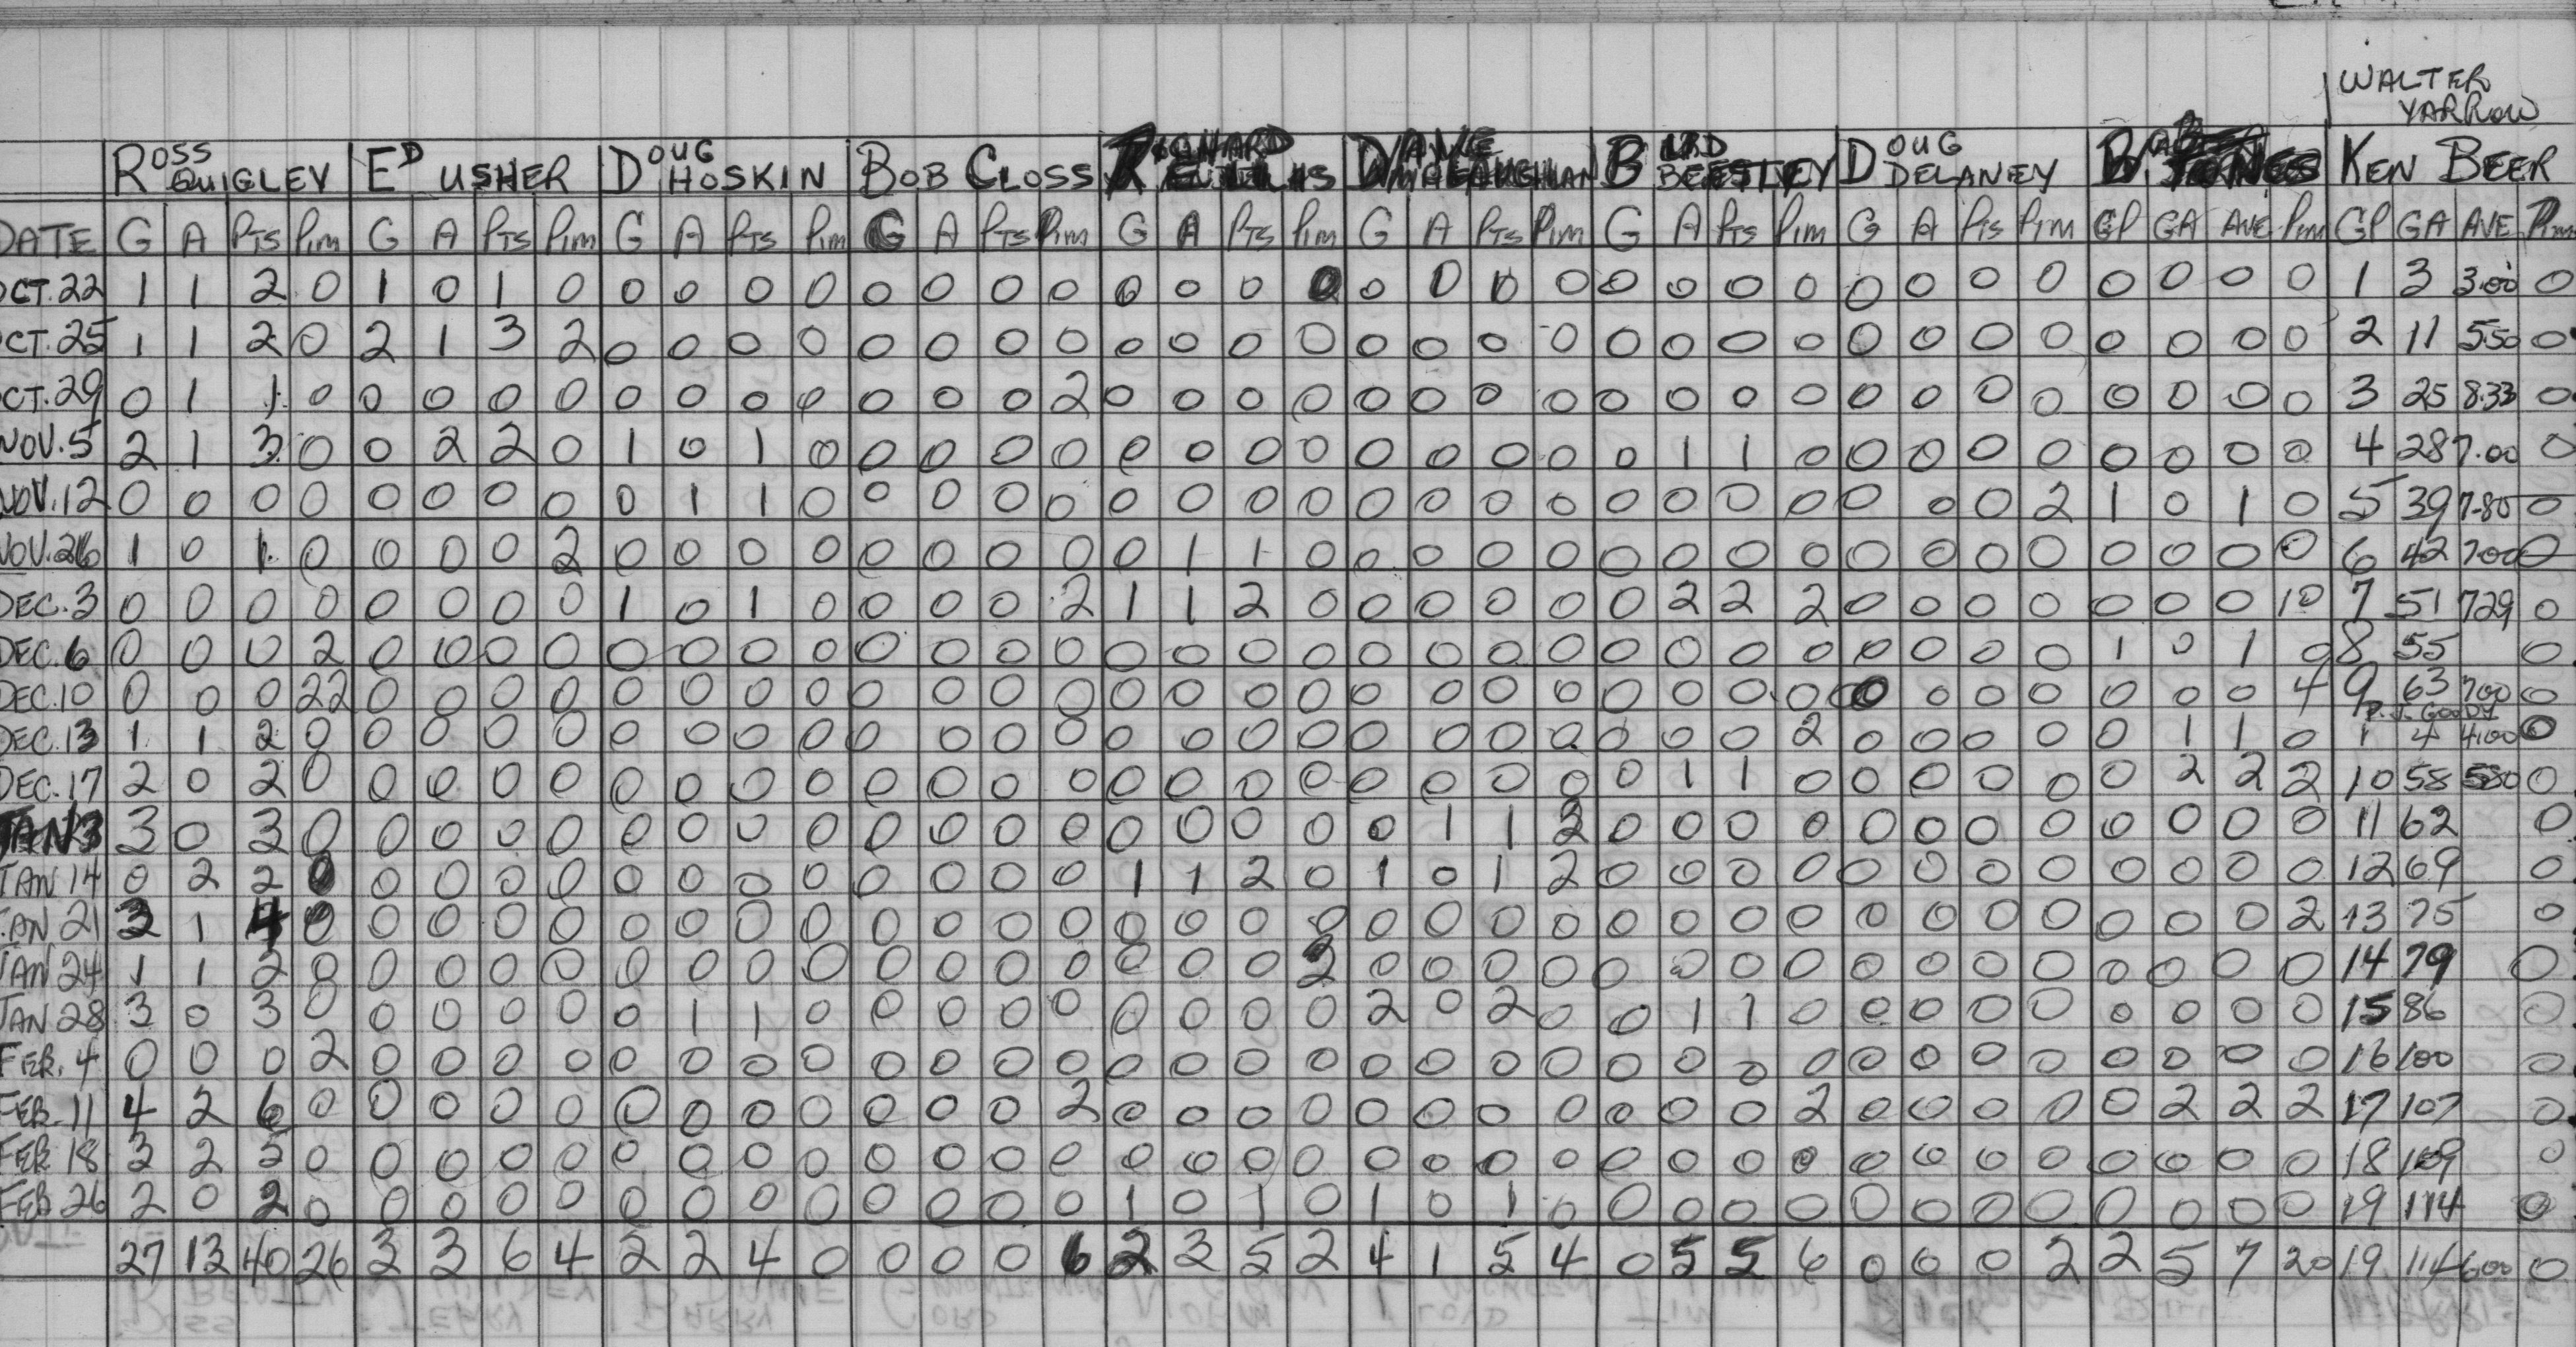 WALTER
YARROW
ROSS QUIGLEY ED USHER DOUG HOSKIN BOB CLOSS RICHARD DAVE BEESTLEY DOUG DELANEY KEN BEER
DATE G A PTS PIM G A PTS PIM G A PTS PIM G A PTS PIM G A PTS PIM G A PTS PIM G A PTS PIM G A PTS PIM GP GA AVE PIM GP GA AVE PIM
OCT. 22 1 1 2 0 1 0 1 0 0 0 0 0 0 0 0 0 0 0 0 0 0 0 0 0 0 0 0 0 0 0 0 0 0 0 0 0 1 3 3.00 0
OCT. 25 1 1 2 0 2 1 3 2 0 0 0 0 0 0 0 0 0 0 0 0 0 0 0 0 0 0 0 0 0 0 0 0 0 0 0 0 2 11 550 0
OCT. 29 0 1 1 0 0 0 0 0 0 0 0 0 0 0 0 2 0 0 0 0 0 0 0 0 0 0 0 0 0 0 0 0 0 0 0 0 3 25 8.33 0
NOV. 5 2 1 3 0 0 2 2 0 1 0 1 0 0 0 0 0 0 0 0 0 0 0 0 0 0 1 1 0 0 0 0 0 0 0 0 0 4 28 7.00 0
NOV. 12 0 0 0 0 0 0 0 0 0 1 1 0 0 0 0 0 0 0 0 0 0 0 0 0 0 0 0 0 0 0 0 2 1 0 1 0 5 39 7.80 0
NOV. 26 1 0 1 0 0 0 0 2 0 0 0 0 0 0 0 0 0 1 1 0 0 0 0 0 0 0 0 0 0 0 0 0 0 0 0 0 6 42 700 0
DEC. 3 0 0 0 0 0 0 0 0 1 0 1 0 0 0 0 2 1 1 2 0 0 0 0 0 0 2 2 2 0 0 0 0 0 0 0 10 7 51 729 0
DEC. 6 0 0 0 2 0 0 0 0 0 0 0 0 0 0 0 0 0 0 0 0 0 0 0 0 0 0 0 0 0 0 0 0 1 0 1 0 8 55 0
DEC. 10 0 0 0 22 0 0 0 0 0 0 0 0 0 0 0 0 0 0 0 0 0 0 0 0 0 0 0 0 0 0 0 0 0 0 0 4 9 63 700 0
P.J. GOODY
DEC. 13 1 1 2 0 0 0 0 0 0 0 0 0 0 0 0 0 0 0 0 0 0 0 0 0 0 0 0 2 0 0 0 0 0 1 1 0 1 4 4.00 0
DEC. 17 2 0 2 0 0 0 0 0 0 0 0 0 0 0 0 0 0 0 0 0 0 0 0 0 0 1 1 0 0 0 0 0 0 2 2 2 10 58 580 0
JAN 3 3 0 3 0 0 0 0 0 0 0 0 0 0 0 0 0 0 0 0 0 0 1 1 2 0 0 0 0 0 0 0 0 0 0 0 0 11 62 0
JAN 14 0 2 2 0 0 0 0 0 0 0 0 0 0 0 0 0 1 1 2 0 1 0 1 2 0 0 0 0 0 0 0 0 0 0 0 0 12 69 0
JAN 21 3 1 4 0 0 0 0 0 0 0 0 0 0 0 0 0 0 0 0 0 0 0 0 0 0 0 0 0 0 0 0 0 0 0 0 2 13 75 0
JAN 24 1 1 2 0 0 0 0 0 0 0 0 0 0 0 0 0 0 0 0 2 0 0 0 0 0 0 0 0 0 0 0 0 0 0 0 0 14 79 0
JAN 28 3 0 3 0 0 0 0 0 0 1 1 0 0 0 0 0 0 0 0 0 2 0 2 0 0 1 1 0 0 0 0 0 0 0 0 0 15 86 0
FEB. 4 0 0 0 2 0 0 0 0 0 0 0 0 0 0 0 0 0 0 0 0 0 0 0 0 0 0 0 0 0 0 0 0 0 0 0 0 16 100 0
FEB. 11 4 2 6 0 0 0 0 0 0 0 0 0 0 0 0 2 0 0 0 0 0 0 0 0 0 0 0 2 0 0 0 0 0 2 2 2 17 107 0
FEB 18 3 2 5 0 0 0 0 0 0 0 0 0 0 0 0 0 0 0 0 0 0 0 0 0 0 0 0 0 0 0 0 0 0 0 0 0 18 109 0
FEB 26 2 0 2 0 0 0 0 0 0 0 0 0 0 0 0 0 1 0 1 0 1 0 1 0 0 0 0 0 0 0 0 0 0 0 0 0 19 114 0
27 13 40 26 3 3 6 4 2 2 4 0 0 0 0 6 2 3 5 2 4 1 5 4 0 5 5 6 0 0 0 2 2 5 7 20 19 114 600 0